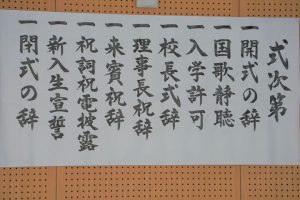 式次第
一開式の辞
一国歌静聴
一入学許可
一校長式辞
一理事長祝辞
一来賓祝辞
一祝詞祝電披露
一新入生宣誓
一閉式の辞